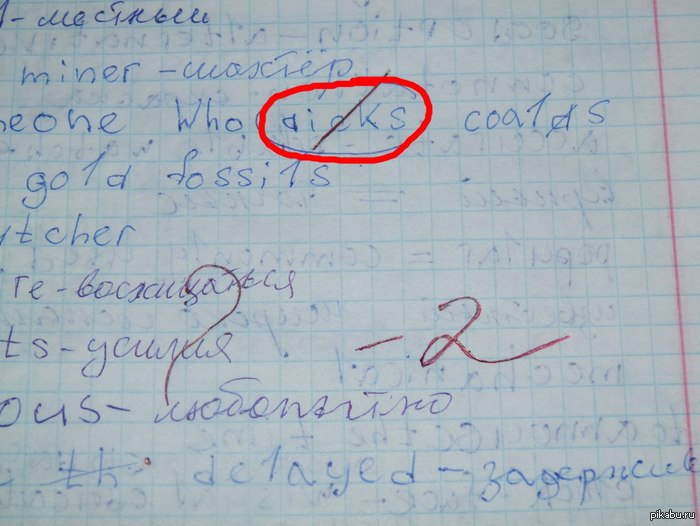 - местный
miner - шахтёр
eone who dicks coalds
gold fossils
tcher
те - восхищаться
ts - усилия
-2
ous - любопытно
th delayed - задержив
pikabu.ru